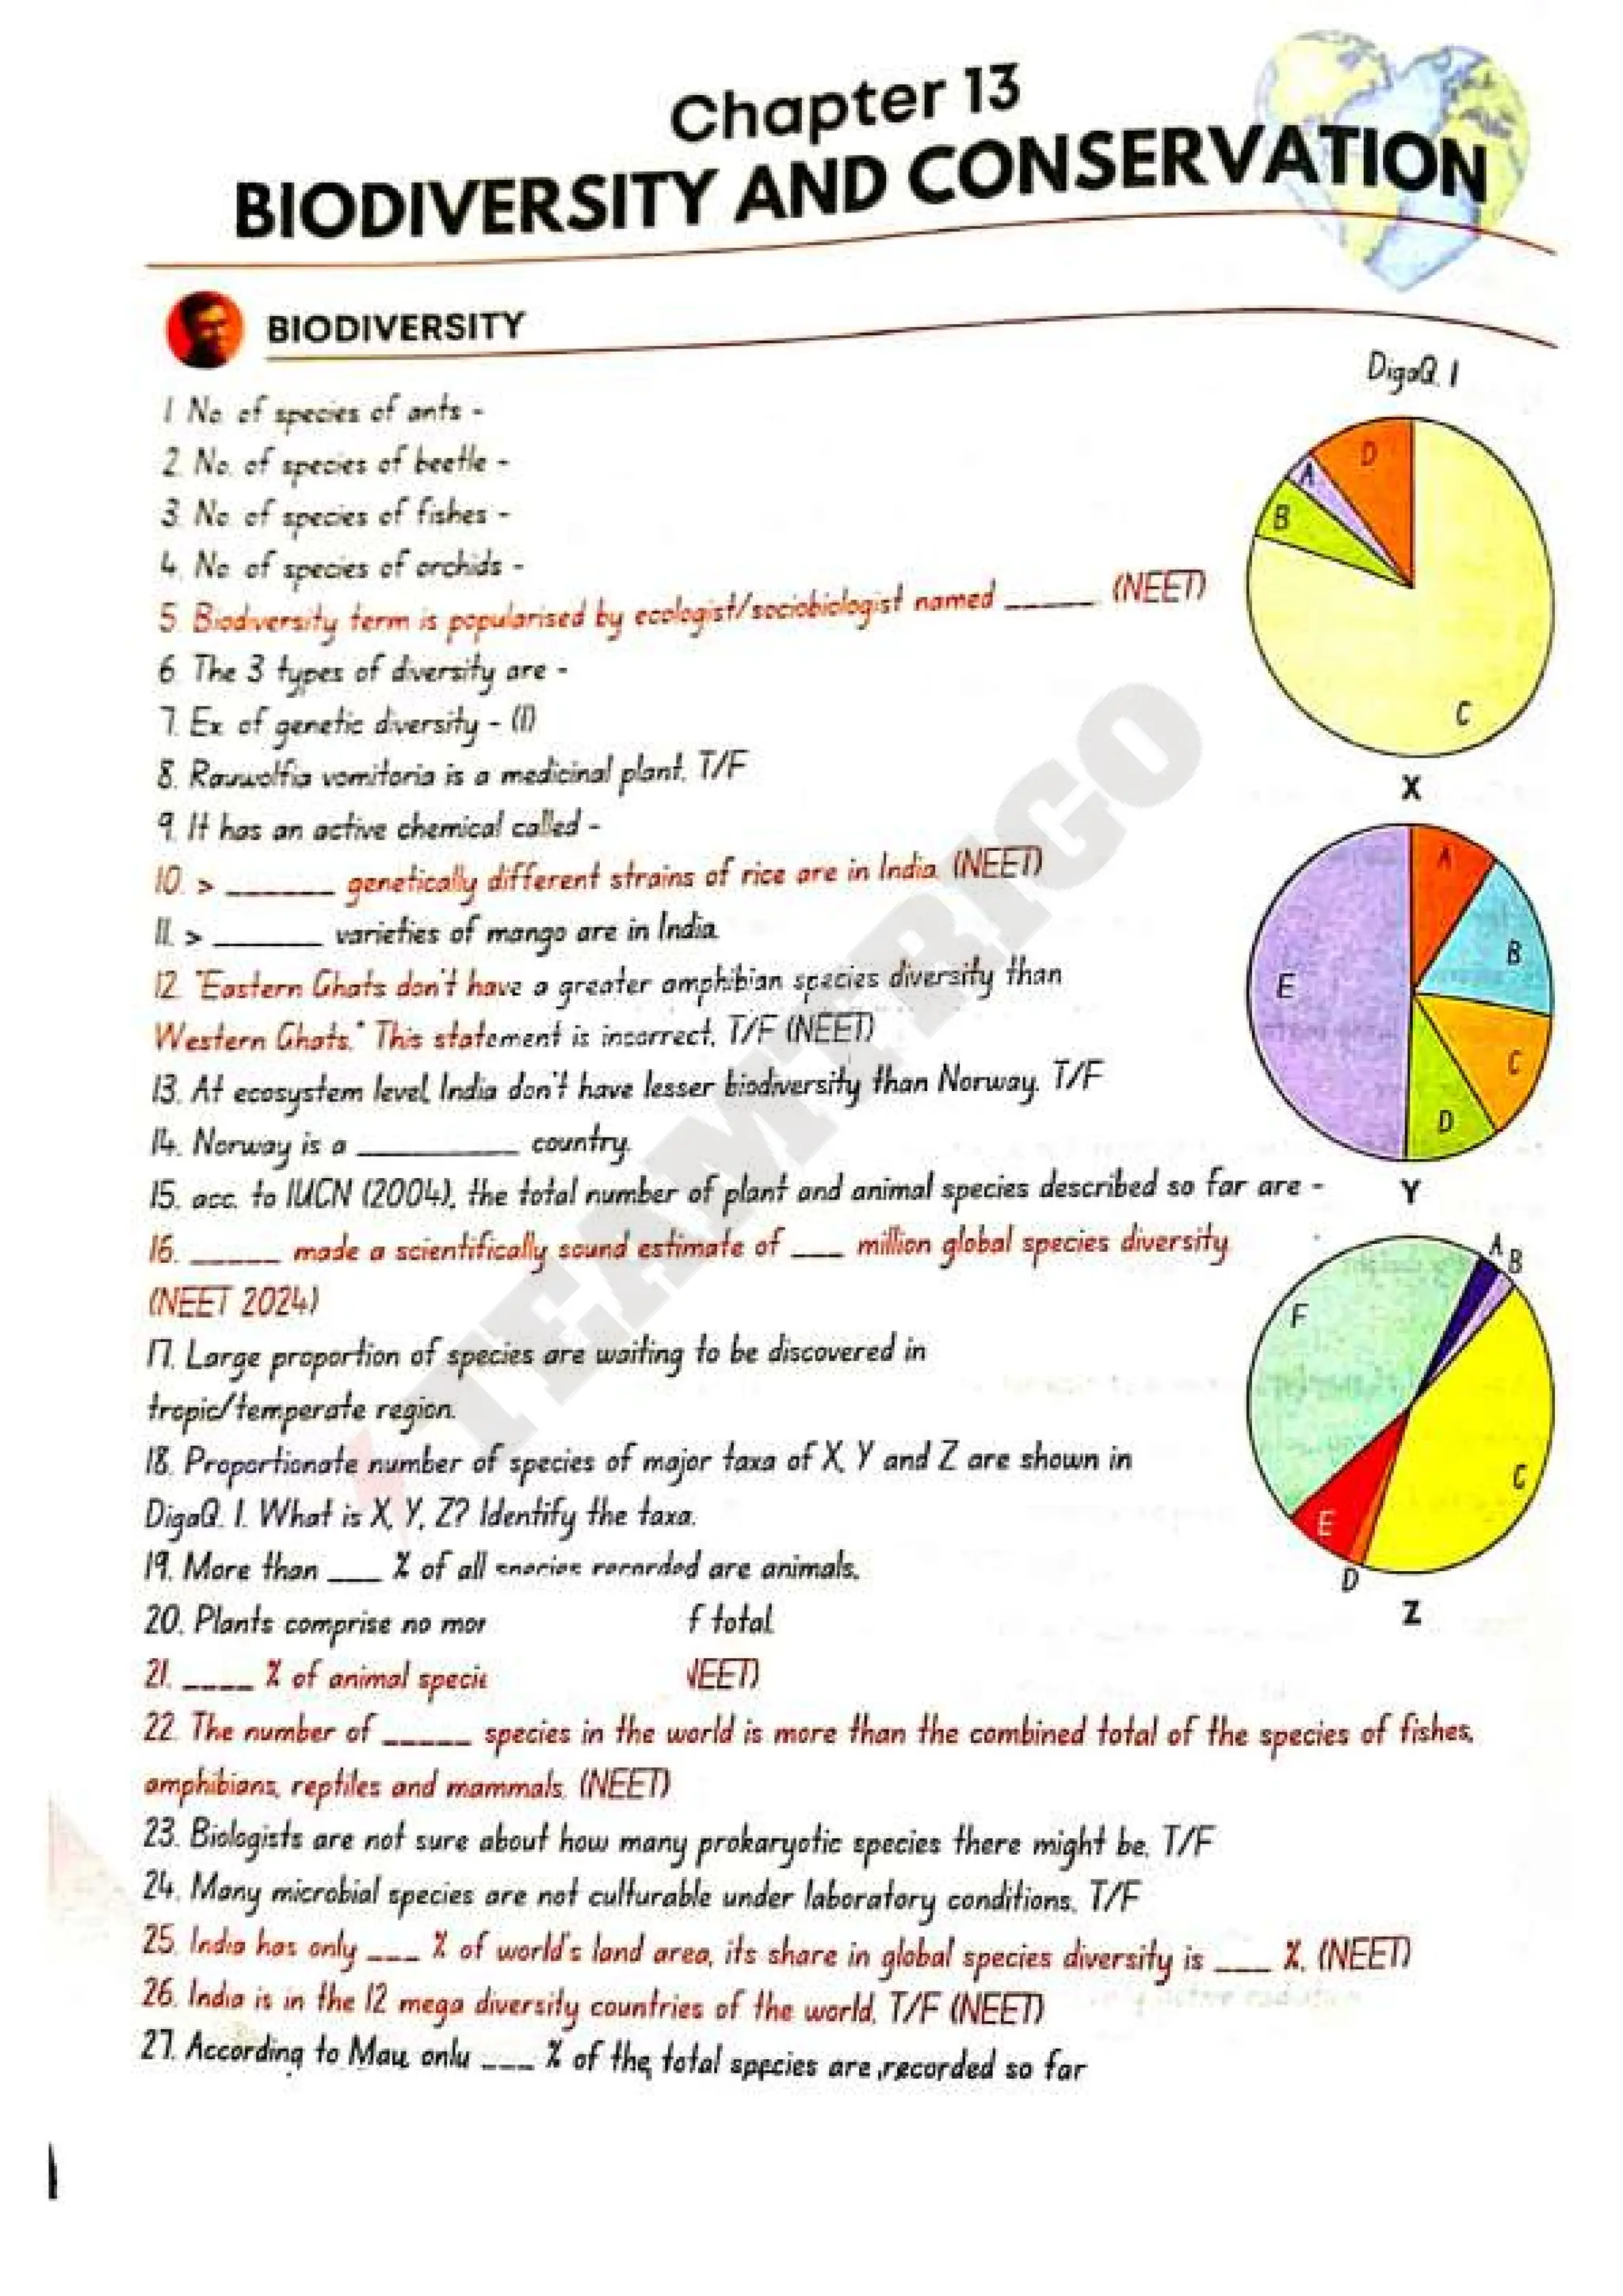 Chapter 13
BIODIVERSITY AND CONSERVATION
BIODIVERSITY
DigaQ. 1
1 No. of species of ants -
2. No. of species of beetle -
3. No of species of fishes -
4. No of species of orchids -
5. Biodiversity term is popularised by ecologist/sociobiologist named _____ (NEET)
6 The 3 types of diversity are -
7. Ex of genetic diversity - (1)
8. Rauwolfia vomitoria is a medicinal plant. T/F
9. It has an active chemical called -
10. > ______ genetically different strains of rice are in India. (NEET)
11. > ______ varieties of mango are in India
12. "Eastern Ghats don't have a greater amphibian species diversity than
Western Ghats." This statement is incorrect. T/F (NEET)
13. At ecosystem level, India don't have lesser biodiversity than Norway. T/F
14. Norway is a _________ country.
15. acc. to IUCN (2004), the total number of plant and animal species described so far are -
16. _____ made a scientifically sound estimate of ___ million global species diversity.
(NEET 2024)
17. Large proportion of species are waiting to be discovered in
tropic/temperate region.
18. Proportionate number of species of major taxa of X, Y and Z are shown in
DigaQ. 1. What is X, Y, Z? Identify the taxa.
19. More than ___ % of all species recorded are animals.
20. Plants comprise no mor f total.
21. ____ % of animal specie NEET)
22. The number of _____ species in the world is more than the combined total of the species of fishes,
amphibians, reptiles and mammals. (NEET)
23. Biologists are not sure about how many prokaryotic species there might be. T/F
24. Many microbial species are not culturable under laboratory conditions. T/F
25. India has only ___ % of world's land area, its share in global species diversity is ___ %. (NEET)
26. India is in the 12 mega diversity countries of the world. T/F (NEET)
27. According to May, only ___ % of the total species are recorded so far
D
A
B
C
X
A
B
E
C
D
Y
A
B
F
C
E
D
Z
TEAMTRIGO